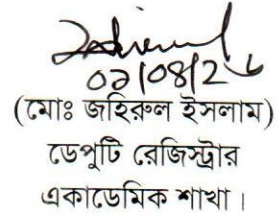 ০২/০৪/২৬
(মোঃ জহিরুল ইসলাম)
ডেপুটি রেজিস্ট্রার
একাডেমিক শাখা।